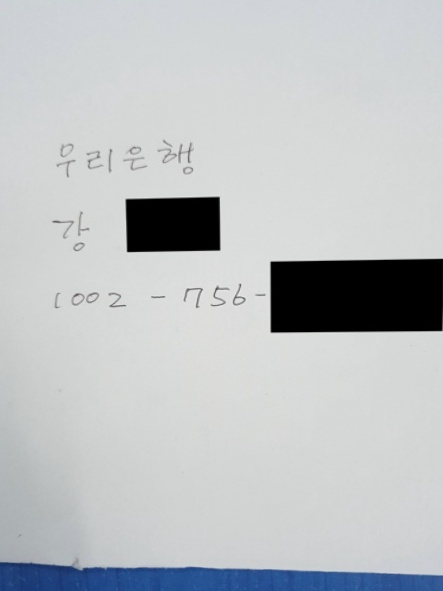 우리은행
강
1002 - 756-